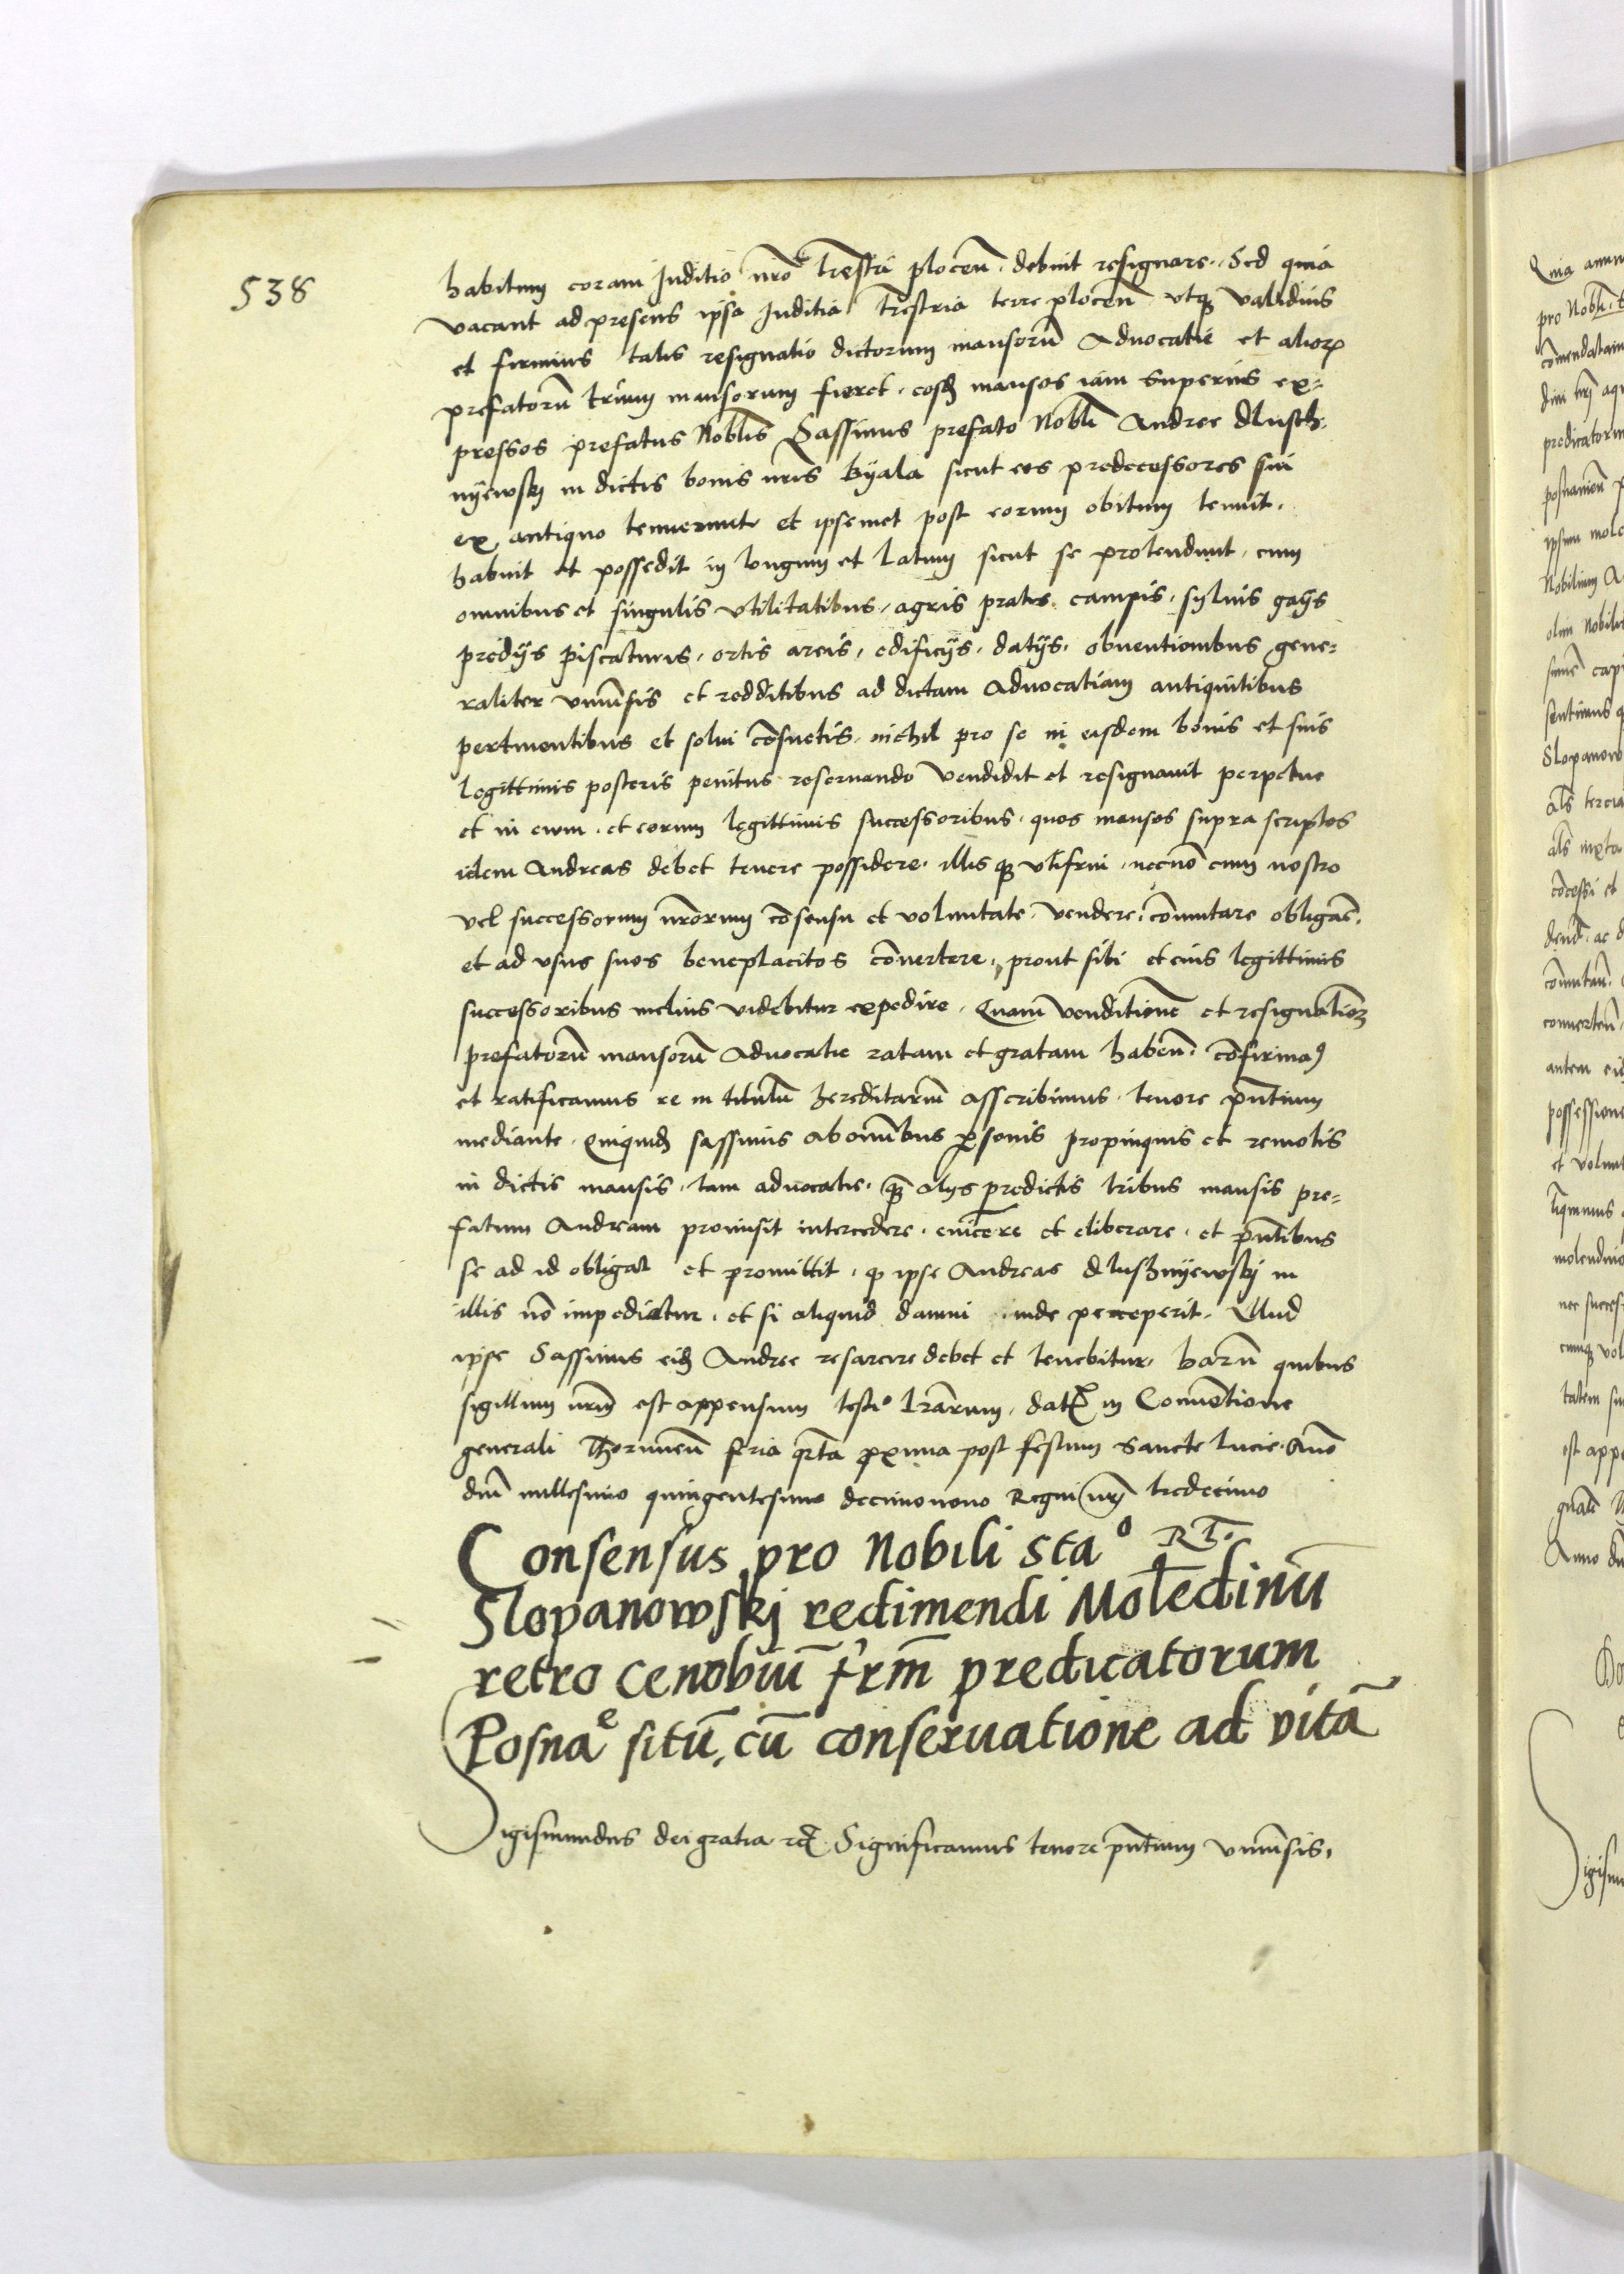 538
habitum coram Juditio nr̄o tr̄estri plocen̄ . debuit resignare . Sed quia
vacant ad presens ipsa Juditia tr̄estria terre plocen̄ vtqꝫ validius
et firmius talis resignatio dictorum mansorū Aduocatie et alioꝝ
prefatorū trium mansorum fieret . eosdꝫ mansos iam superius ex=
pressos prefatus Nobl̄is Sassinus prefato Nobl̄i Andree Dlusch
nyewskj in dictis bonis nr̄is Byala sicut eos predecessores sui
ex antiquo tenuerunt et ipsemet post eorum obitum tenuit .
habuit et possedit in longum et latum sicut se protendunt . cum
omnibus et singulis vtilitatibus , agris pratis . campis . syluis gays
predijs piscaturis . ortis areis , edificijs . datijs . obuentionibus gene=
raliter vniūsis et redditibus ad dictam Aduocatiam antiquitibus
pertinentibus et solui cōsuetis . nichil pro se in eisdem bonis et suis
legittimis posteris penitus reseruando vendidit et resignauit perpetue
et in ewm . et eorum legittimis successoribus . quos mansos supra scriptos
idem Andreas debet tenere possidere . illis qꝫ vtifrui . necnō cum nostro
vel successorum nr̄orum cōsensu et voluntate . vendere . cōmutare obligare .
et ad vsus suos beneplacitos cōuertere , prout sibi et eius legittimis
successoribus melius videbitur expedire . Quam venditionē et resignatiōꝫ
prefatorū mansorū Aduocatie ratam et gratam haben̄ . cōfirmaꝯ
et ratificamus re in titulū hereditariū asscribimus . tenore pn̄tium
mediante . Quiquidꝫ sassinus ab om̄ibus ꝑsonis propinquis et remotis
in dictis mansis . tam aduocatie . qꝫ alijs predictis tribus mansis pre=
fatum Andream promisit intercedere . euincere et eliberare . et pn̄tibus
se ad id obligat et promittit . qꝫ ipse Andreas dlusznyewskj in
illis nō impedietur . et si aliquid damni inde perceperit . Illud
ipse Sassinus eidꝫ Andree resarcire debet et tenebitur . harū quibus
sigillum nr̄m est appensum testio lr̄arum . datꝫ in Conuētione
generali Thorunen̄ feria qr̄ta ꝓxima post festum Sancte Lucie . Anō
dn̄i millesimo quingentesimo decimonono Regni nr̄j tredecimo
Consensus pro Nobili Stao R T.
Slopanowskj redimendi Moledinū
retro cenobiū fr̄m predicatorum
Posnae sitū, cū conseruatione ad vitā
Sigismundus dei gratia rex Significamus tenore pn̄tium vniūsis .